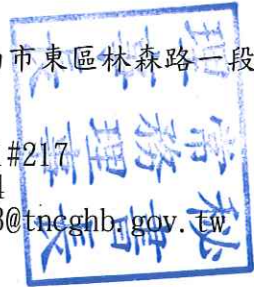 市東區林森路一段
#217
@tncghb.gov.tw
理事長
常務理事
秘書長